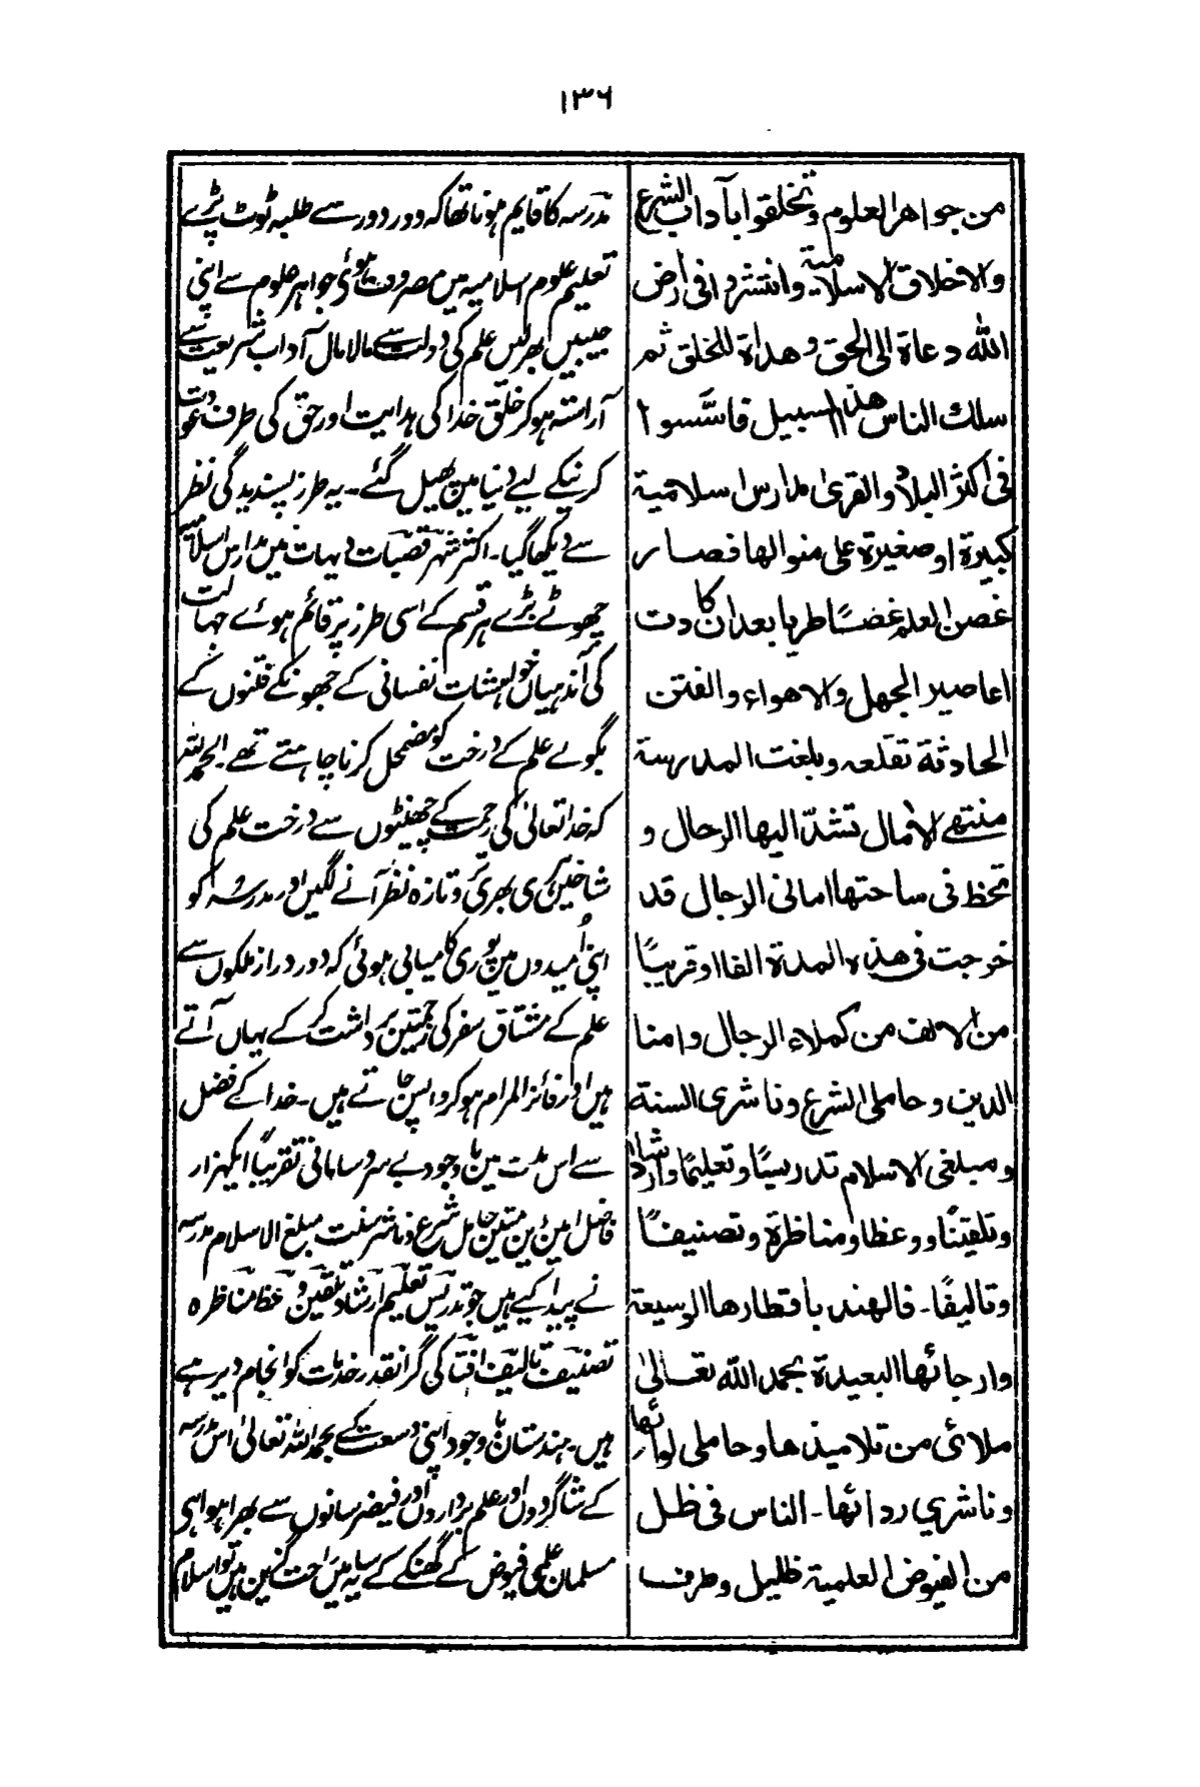 ١٣٦
من جواهر العلوم وتخلقوا بآداب الشرع
والاخلاق الاسلامية وانتشروا فى ارض
الله دعاة الى الحق وهداة للخلق ثم
سلك الناس هذا السبيل فاسّسوا
فى اكثر البلاد والقرىٰ مدارس اسلامية
كبيرة او صغيرة على منوالها فصار
غصن العلم غضًا طريا بعد ان كادت
اعاصير الجهل والاهواء والفتن
الحادثة تقلعه وبلغت المدرسة
منتهى الامال تشدّ اليها الرحال و
تحظ فى ساحتها امانى الرجال قد
خرجت فى هذه المدة الفا او قريبًا
من الالف من كملاء الرجال وامنا
الدين وحاملى الشرع وناشرى السنة
ومبلغى الاسلام تدريسًا وتعليمًا وارشادا
وتلقينًا ووعظا ومناظرة وتصنيفًا
وتاليفًا۔ فالهند باقطارها الوسيعة
وارجائها البعيدة بحمد الله تعالىٰ
ملائى من تلاميذها وحاملى لوائها
وناشري ردائها۔ الناس فى ظل
من الفيوض العلمية ظليل وطرف
مدرسہ کا قایم ہونا تھا کہ دور دور سے طلبہ ٹوٹ پڑے
تعلیم علوم اسلامیہ میں مصروف ہوئے جواہر علوم سے اپنی
جیبیں بھر لیں علم کی دولت سے مالامال آداب شریعت سے
آراستہ ہو کر خلق خدا کی ہدایت اور حق کی طرف دعوت
کرنیکے لیے دنیا میں پھیل گئے۔ یہ طرز پسندیدگی نظر
سے دیکھا گیا۔ اکثر شہر قصبات دیہات میں مدارس اسلامیہ
چھوٹے بڑے ہر قسم کے اسی طرز پر قائم ہوئے جہالت
کی آندہیاں خواہشات نفسانی کے جھونکے فتنوں کے
بگولے علم کے درخت کو مضمحل کرنا چاہتے تھے۔ الحمد للہ
کہ خدا تعالیٰ کی رحمت کے چھینٹوں سے درخت علم کی
شاخیں ہری بھری و تازہ نظر آنے لگیں اور مدرسہ کو
اپنی اُمیدوں میں پوری کامیابی ہوئی کہ دور دراز ملکوں سے
علم کے مشتاق سفر کی زحمتیں برداشت کر کے یہاں آتے
ہیں اور فائز المرام ہو کر واپس جاتے ہیں۔ خدا کے فضل
سے اس مدت میں باوجود بے سروسامانی تقریباً ایکہزار
فاضل امین دین متین حامل شرع و ناشر سنت مبلغ الاسلام مدرسہ
نے پیدا کیے ہیں جو تدریس تعلیم ارشاد تلقین وعظ مناظرہ
تصنیف تالیف افتا کی گرانقدر خدمات کو انجام دیرہے
ہیں۔ ہندستان باوجود اپنی وسعت کے بحمد اللہ تعالیٰ اس مدرسہ
کے شاگردوں اور علم برداروں اور فیضرسانوں سے بھرا ہوا ہی
مسلمان علمی فیوض کے گھنکے سایہ میں راحت گزین ہیں تو اسلام